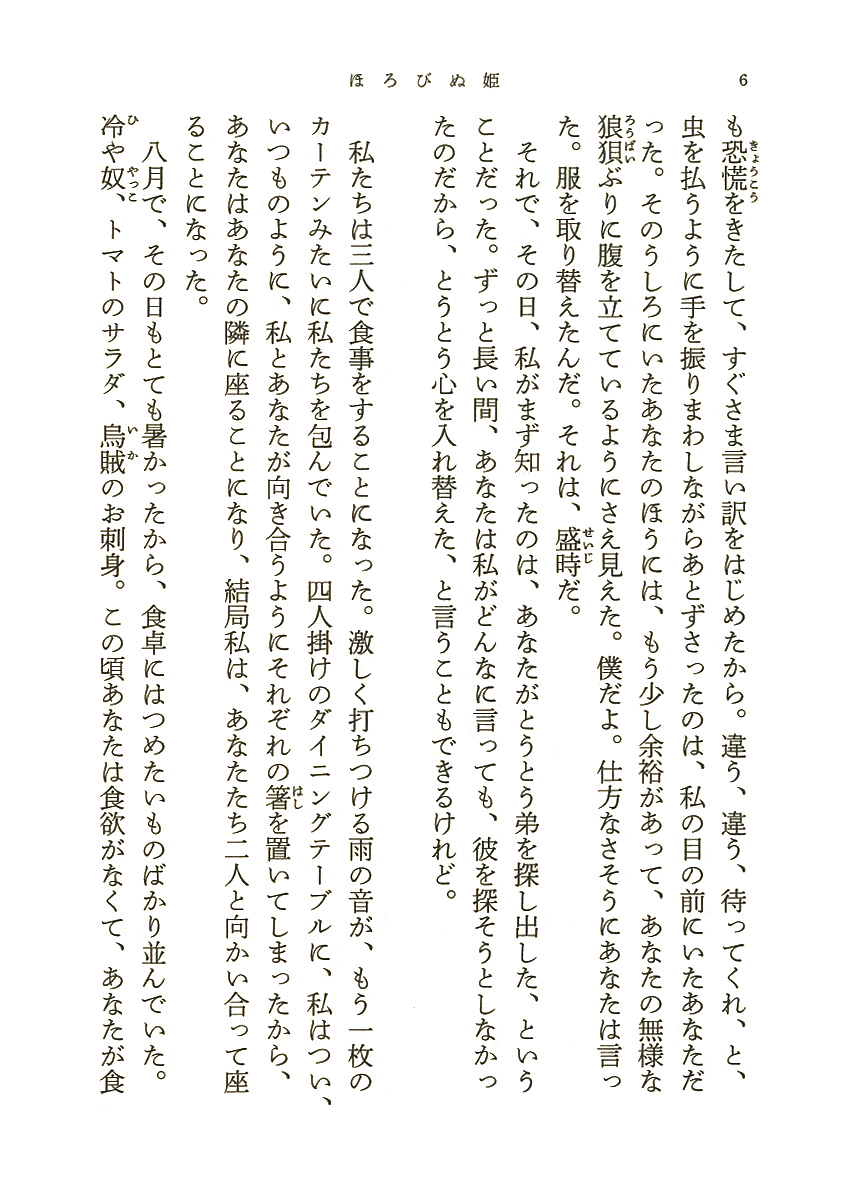 ほろびぬ姫
6
も恐慌をきたして、すぐさま言い訳をはじめたから。違う、違う、待ってくれ、と、
虫を払うように手を振りまわしながらあとずさったのは、私の目の前にいたあなただ
った。そのうしろにいたあなたのほうには、もう少し余裕があって、あなたの無様な
狼狽ぶりに腹を立てているようにさえ見えた。僕だよ。仕方なさそうにあなたは言っ
た。服を取り替えたんだ。それは、盛時だ。
それで、その日、私がまず知ったのは、あなたがとうとう弟を探し出した、という
ことだった。ずっと長い間、あなたは私がどんなに言っても、彼を探そうとしなかっ
たのだから、とうとう心を入れ替えた、と言うこともできるけれど。
私たちは三人で食事をすることになった。激しく打ちつける雨の音が、もう一枚の
カーテンみたいに私たちを包んでいた。四人掛けのダイニングテーブルに、私はつい、
いつものように、私とあなたが向き合うようにそれぞれの箸を置いてしまったから、
あなたはあなたの隣に座ることになり、結局私は、あなたたち二人と向かい合って座
ることになった。
八月で、その日もとても暑かったから、食卓にはつめたいものばかり並んでいた。
冷や奴、トマトのサラダ、烏賊のお刺身。この頃あなたは食欲がなくて、あなたが食